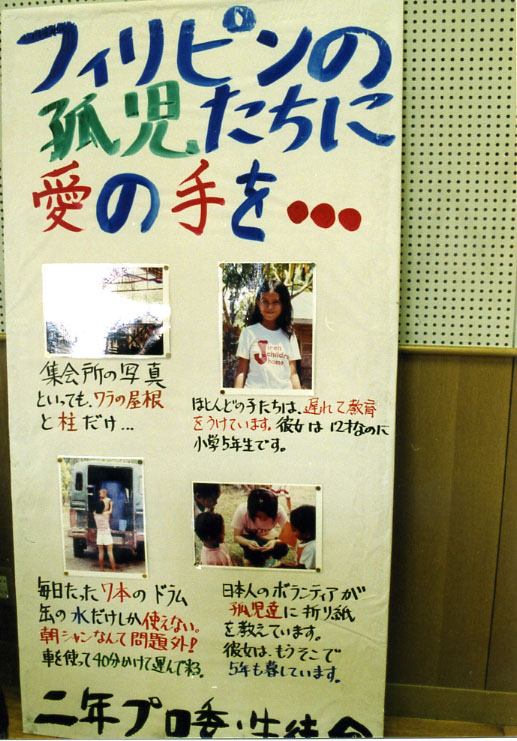 フィリピンの
孤児たちに
愛の手を•••
集会所の写真
といっても、ワラの屋根
と柱だけ...
ほとんどの子たちは、遅れて教育
をうけています。彼女は12才なのに
小学5年生です。
毎日たった7本のドラム
缶の水だけしか使えない。
朝シャンなんて問題外!
車を使って40分かけて運んで来る。
日本人のボランティアが
孤児達に折り紙
を教えています。
彼女は、もうそこで
5年も暮しています。
children
home
二年プロ委・生徒会